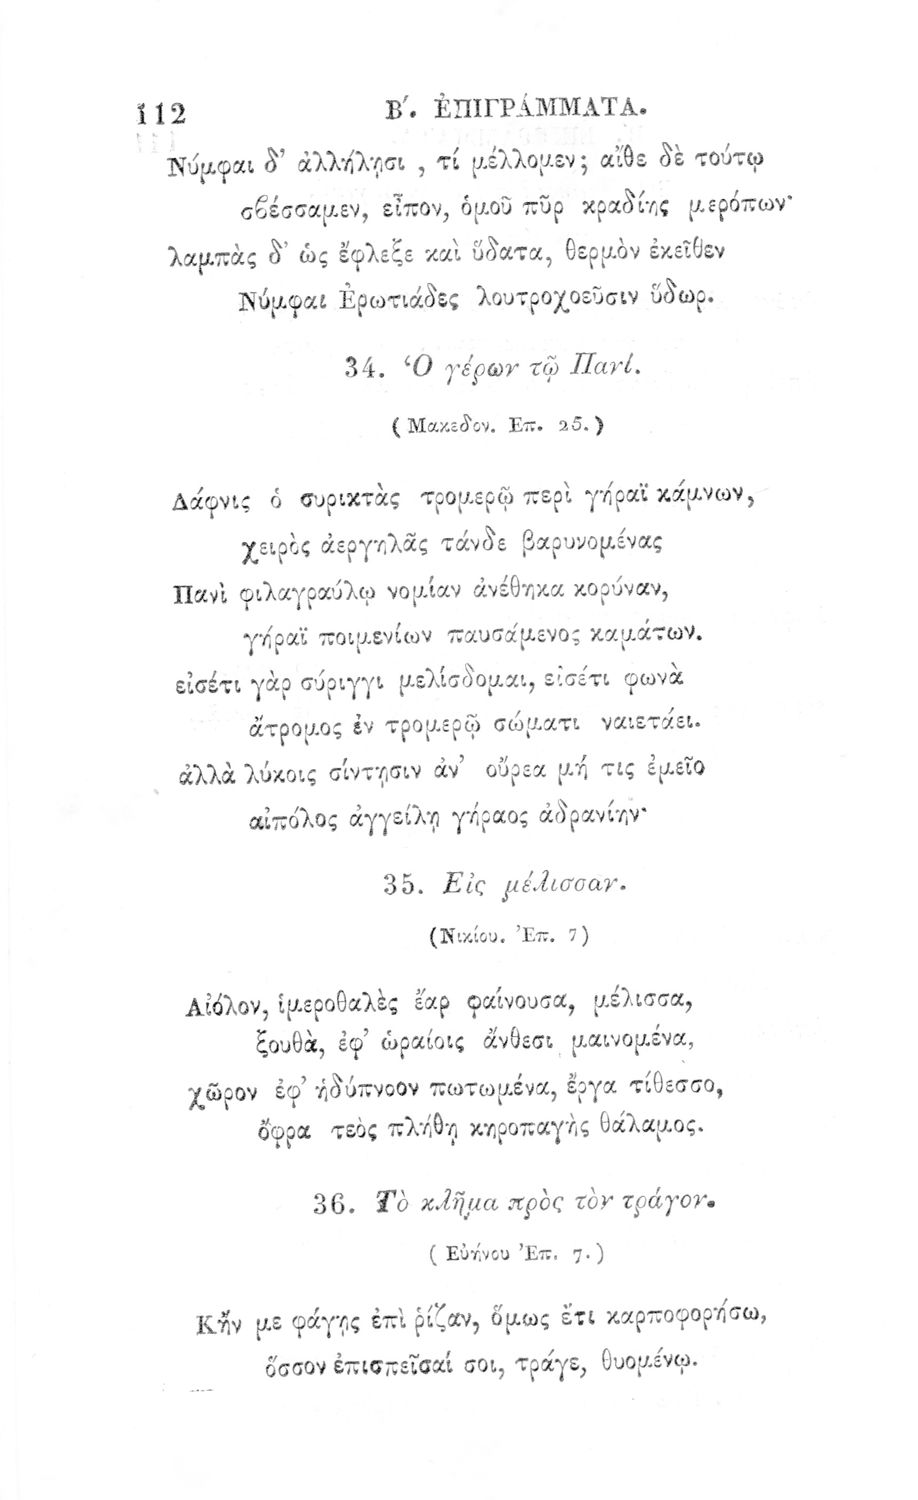 112
Β΄. ἘΠΙΓΡΆΜΜΑΤΑ.
Νύμφαι δ’ ἀλλήλῃσι , τί μέλλομεν ; αἴθε δὲ τούτῳ
σβέσσαμεν, εἶπον, ὁμοῦ πῦρ κραδίης μερόπων·
λαμπὰς δ’ ὡς ἔφλεξε καὶ ὕδατα, θερμὸν ἐκεῖθεν
Νύμφαι Ἐρωτιάδες λουτροχοεῦσιν ὕδωρ.
34. Ὁ γέρων τῷ Πανί.
( Μακεδον. Επ. 25. )
Δάφνις ὁ συρικτὰς τρομερῷ περὶ γήραϊ κάμνων,
χειρὸς ἀεργηλᾶς τάνδε βαρυνομένας
Πανὶ φιλαγραύλῳ νομίαν ἀνέθηκα κορύναν,
γήραϊ ποιμενίων παυσάμενος καμάτων.
εἰσέτι γὰρ σύριγγι μελίσδομαι, εἰσέτι φωνὰ
ἄτρομος ἐν τρομερῷ σώματι ναιετάει.
ἀλλὰ λύκοις σίντῃσιν ἀν’ οὔρεα μή τις ἐμεῖο
αἰπόλος ἀγγείλῃ γήραος ἀδρανίην·
35. Εἰς μέλισσαν.
(Νικίου. Ἐπ. 7)
Αἰόλον, ἱμεροθαλὲς ἔαρ φαίνουσα, μέλισσα,
ξουθὰ, ἐφ’ ὡραίοις ἄνθεσι μαινομένα,
χῶρον ἐφ’ ἡδύπνοον πωτωμένα, ἔργα τίθεσσο,
ὄφρα τεὸς πλήθῃ κηροπαγὴς θάλαμος.
36. Τὸ κλῆμα πρὸς τὸν τράγον.
( Εὐήνου Ἐπ. 7. )
Κἤν με φάγῃς ἐπὶ ῥίζαν, ὅμως ἔτι καρποφορήσω,
ὅσσον ἐπισπεῖσαί σοι, τράγε, θυομένῳ.